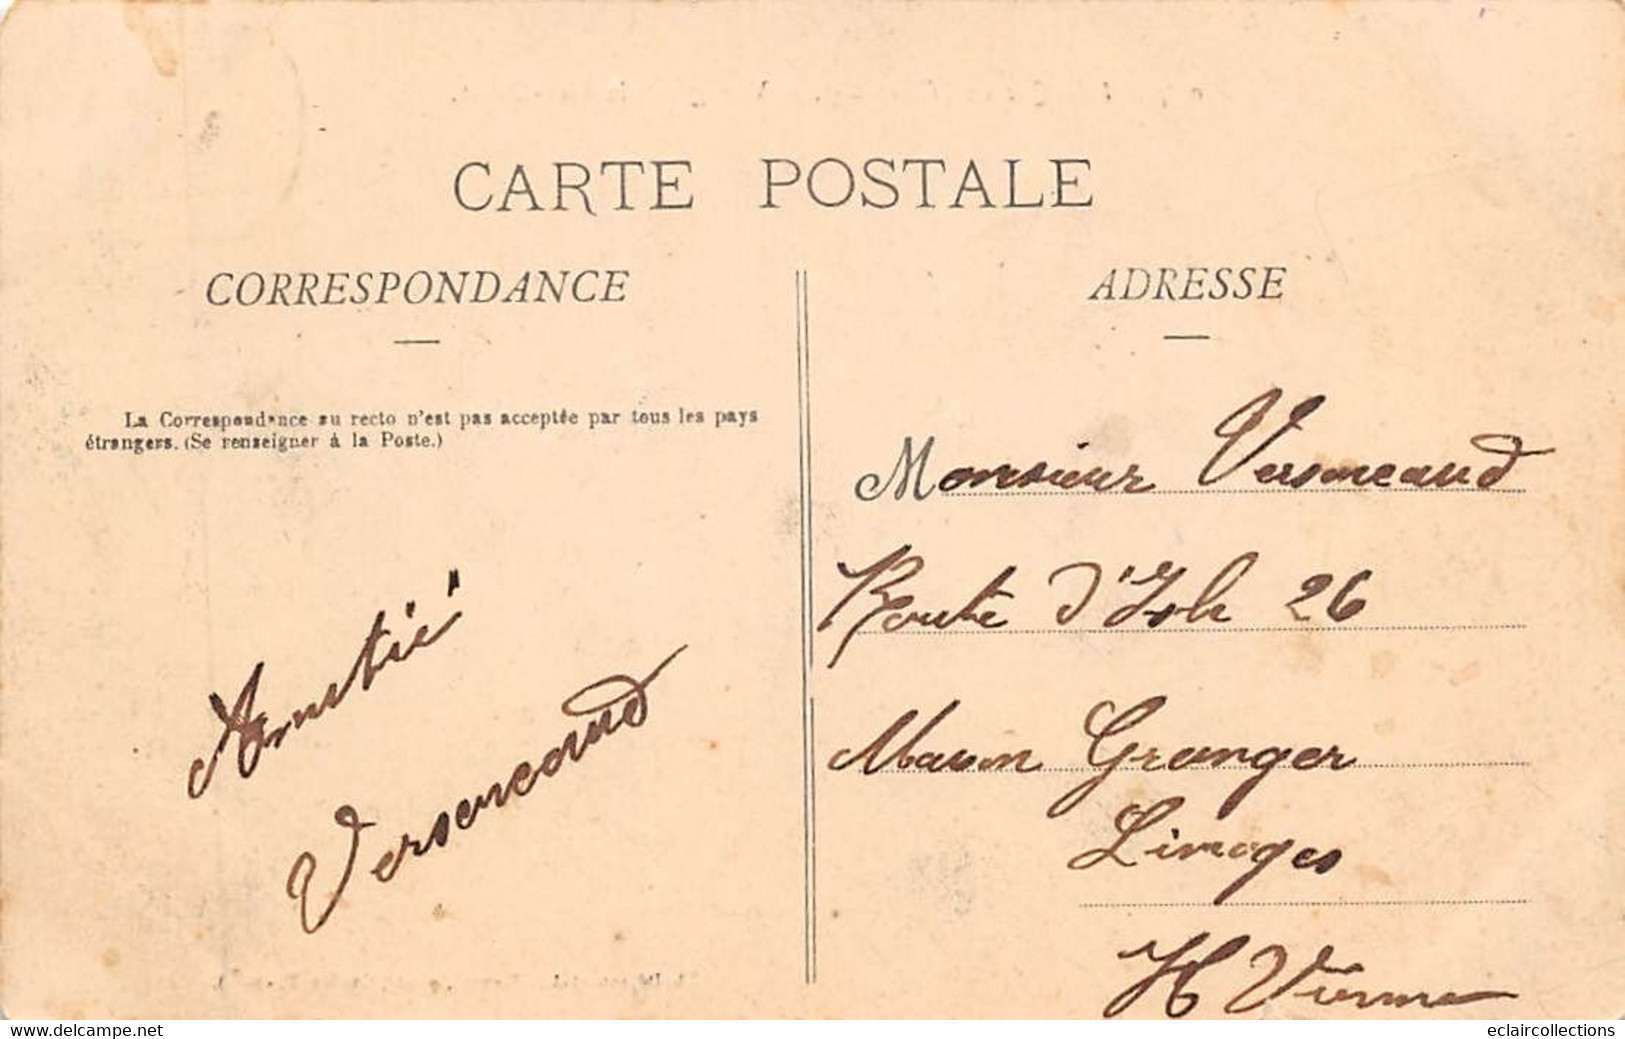 CARTE POSTALE
CORRESPONDANCE
La Correspondance au recto n'est pas acceptée par tous les pays
étrangers. (Se renseigner à la Poste.)
Amitié
Versmeaud
ADRESSE
Monsieur Versmeaud
Route d'Isle 26
Maison Granger
Limoges
H Vienne
www.delcampe.net
eclaircollections